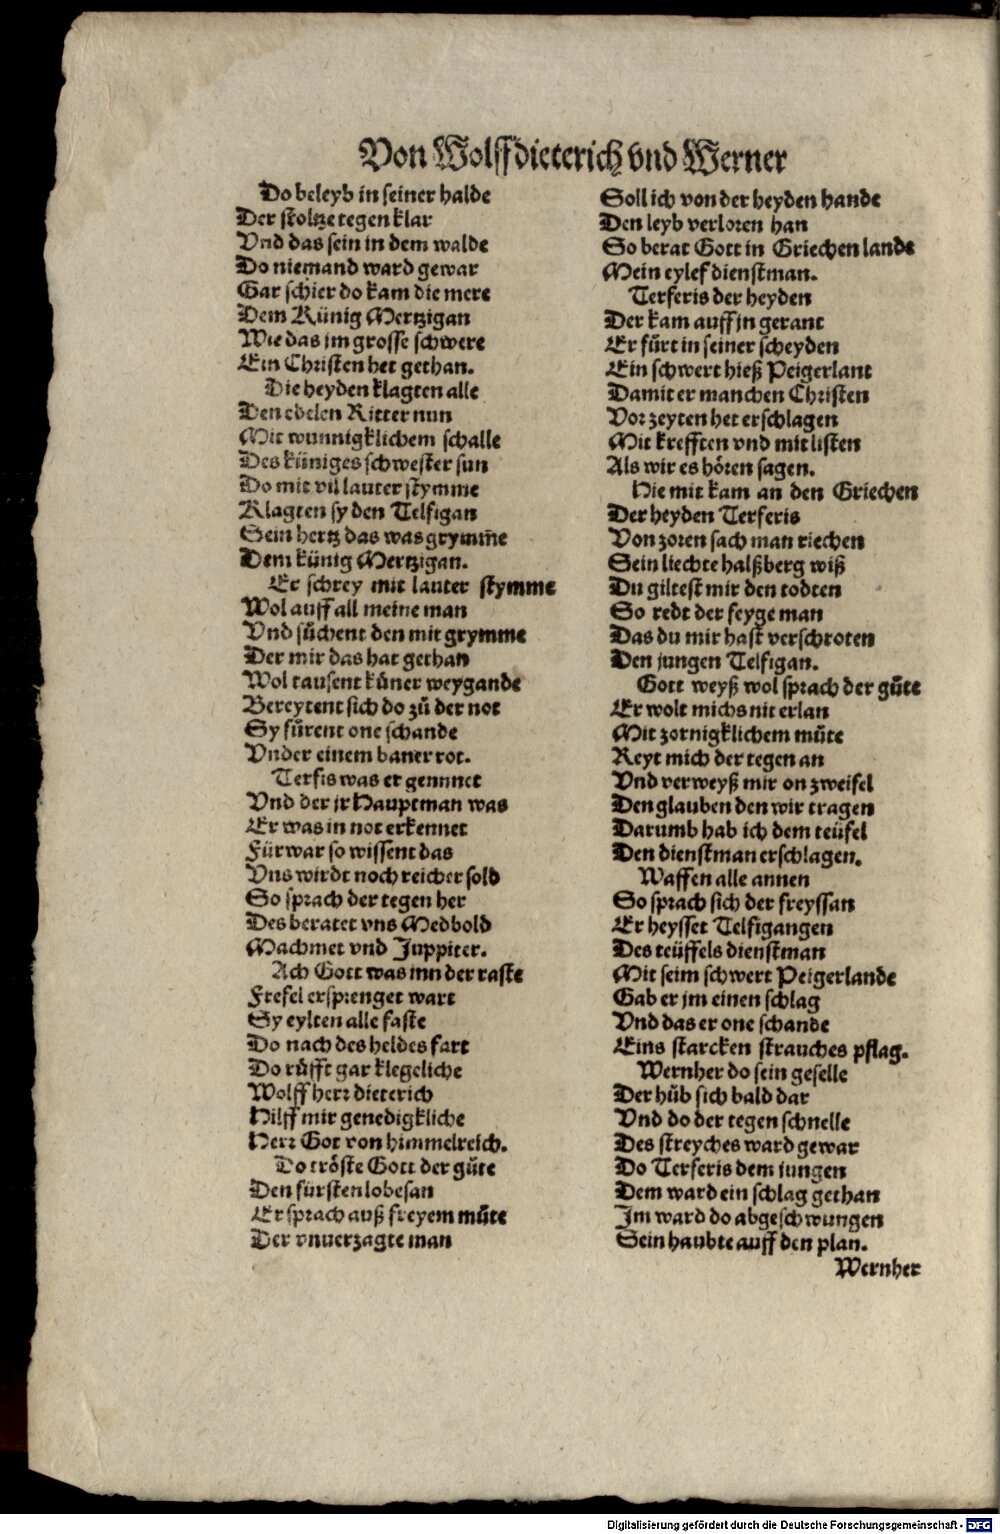 Von Wolffdieterich vnd Werner
Do beleyb in seiner halde
Der stoltze tegen klar
Vnd das sein in dem walde
Do niemand ward gewar
Gar schier do kam die mere
Dem Künig Mertzigan
Wie das jm grosse schwere
Ein Christen het gethan.
Die heyden klagten alle
Den edelen Ritter nun
Mit wunnigklichem schalle
Des küniges schwester sun
Do mit vil lauter stymme
Klagten sy den Telfigan
Sein hertz das was grym̃e
Dem künig Mertzigan.
Er schrey mit lauter stymme
Wol auff all meine man
Vnd sůchent den mit grymme
Der mir das hat gethan
Wol tausent küner weygande
Bereytent sich do zů der not
Sy fůrent one schande
Vnder einem baner rot.
Terfis was er gennnet
Vnd der jr Hauptman was
Er was in not erkennet
Fürwar so wissent das
Vns wirdt noch reicher sold
So sprach der tegen her
Des beratet vns Medbold
Machmet vnd Juppiter.
Ach Gott was inn der raste
Frefel ersprenget wart
Sy eylten alle faste
Do nach des heldes fart
Do růfft gar klegeliche
Wolff herr dieterich
Hilff mir genedigkliche
Herr Got von himmelreich.
Do tröste Gott der gůte
Den fürsten lobesan
Er sprach auß freyem můte
Der vnuerzagte man
Soll ich von der heyden hande
Den leyb verloren han
So berat Gott in Griechen lande
Mein eylef dienstman.
Terferis der heyden
Der kam auff jn gerant
Er fůrt in seiner scheyden
Ein schwert hieß Peigerlant
Damit er manchen Christen
Vor zeyten het erschlagen
Mit krefften vnd mit listen
Als wir es hören sagen.
Hie mit kam an den Griechen
Der heyden Terferis
Von zoren sach man riechen
Sein liechte halßberg wiß
Du giltest mir den todten
So redt der feyge man
Das du mir hast verschroten
Den jungen Telfigan.
Gott weyß wol sprach der gůte
Er wolt michs nit erlan
Mit zornigklichem můte
Reyt mich der tegen an
Vnd verweyß mir on zweifel
Den glauben den wir tragen
Darumb hab ich dem teüfel
Den dienstman erschlagen.
Waffen alle annen
So sprach sich der freyssan
Er heysset Telfigangen
Des teüffels dienstman
Mit seim schwert Peigerlande
Gab er jm einen schlag
Vnd das er one schande
Eins starcken strauches pflag.
Wernher do sein geselle
Der hůb sich bald dar
Vnd do der tegen schnelle
Des streyches ward gewar
Do Terferis dem jungen
Dem ward ein schlag gethan
Im ward do abgeschwungen
Sein haubte auff den plan.
Wernher
Digitalisierung gefördert durch die Deutsche Forschungsgemeinschaft - DFG